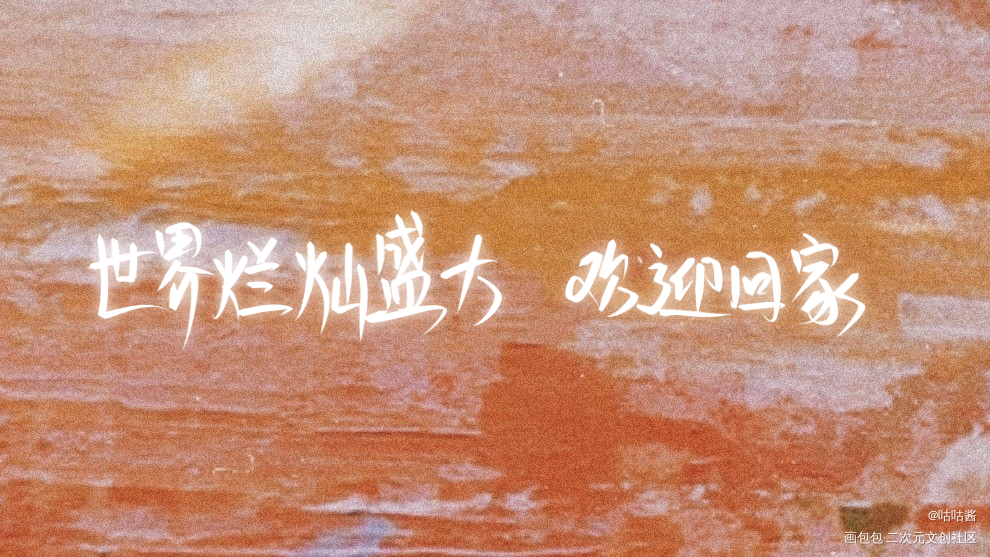 世界烂灿盛大 欢迎回家
@咕咕酱
画包包·二次元文创社区